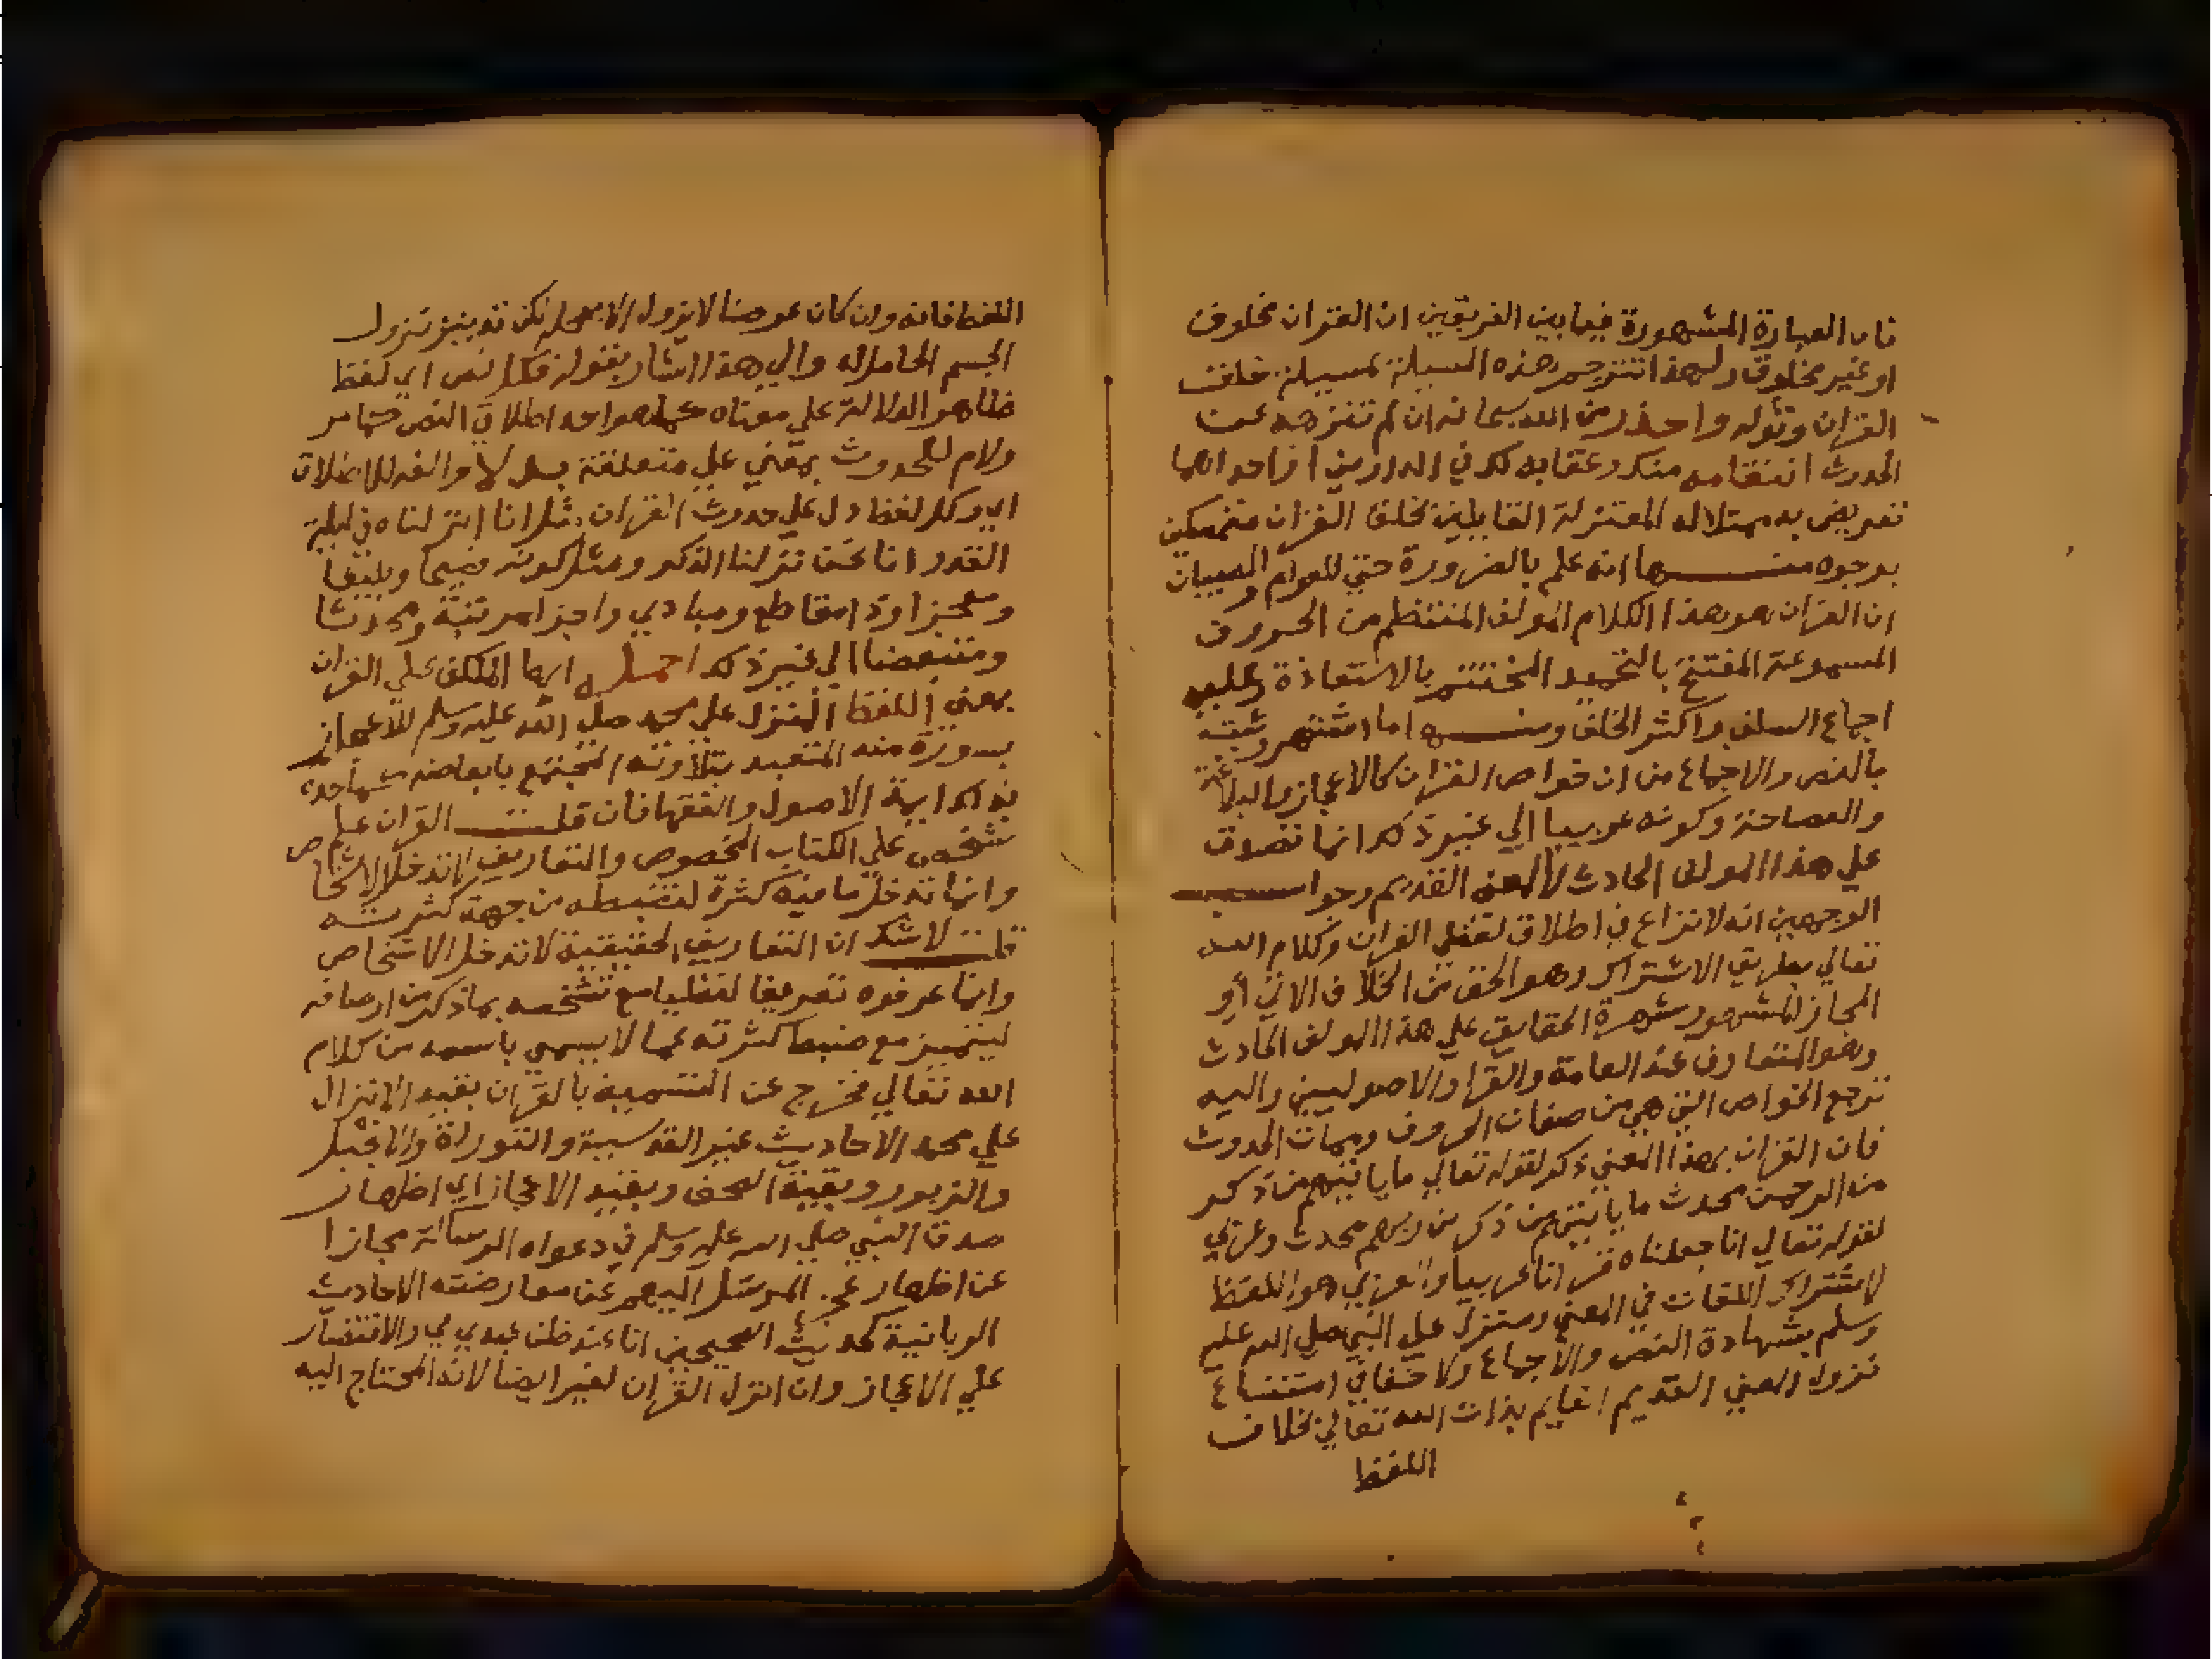 فان العبارة المشهورة فيما بين الفريقين ان القران مخلوق
او غير مخلوق ولهذا تترجم هذه المسيلة بمسيلة خلق
القران وقوله واحذر من الله سبحانه ان لم تنزهه عن
الحدوث انتقامه منك وعقابه لك في الدارين او احداهما
تعريض به بضلالة المعتزلة القايلين بخلق القران متمسكين
بوجوه منها انه علم بالضرورة حتي للعوام والصبيان
ان القران هو هذا الكلام المولف المنتظم من الحروف
المسموعة المفتتح بالتحميد المختتم بالاستعاذة وعليه
اجماع السلف واكثر الخلف ومنها اما اشتهر وثبت
بالنص والاجماع من ان خواص القران كالاعجاز والبلاغة
والفصاحة وكونه عربيا الي غير ذلك انما تصدق
علي هذا المولف الحادث لا المعني القديم وجواب
الوجهين انه لا نزاع في اطلاق لفظي القران وكلام الله
تعالي بطريق الاشتراك وهو الحق من الخلاف الاتي او
المجاز المشهور شهرة الحقايق علي هذا المولف الحادث
وهو المتعارف عند العامة والقرا والاصوليين واليه
ترجع الخواص التي هي من صفات الحروف وسمات الحدوث
فان القران بهذا المعني ذكر لقوله تعالي ما ياتيهم من ذكر
من الرحمن محدث ما ياتيهم من ذكر من ربهم محدث وعربي
لقوله تعالي انا جعلناه قرانا عربيا والعربي هو اللفظ
لاشتراك اللغات في المعني ومنزل علي النبي صلي الله عليه
وسلم بشهادة النص والاجماع ولا خفا في امتناع
نزول المعني القديم القايم بذات الله تعالي بخلاف
اللفظ
اللفظ فانه وان كان عرضا لا يزول الا بمحله لكن قد ينزل بنزول
الجسم الحامل له والي هذا اشار بقوله فكل نص اي لفظ
ظاهر الدلالة علي معناه كما هو احد اطلاق النص
ولام للحدوث بمعني علي متعلقة بدل لا والفه للاطلاق
اي وكل لفظ دل علي حدوث القران مثل انا انزلناه في ليلة
القدر انا نحن نزلنا الذكر ومثل كونه فصيحا وبليغا
ومعجزا وذا مقاطع ومبادي واجزا مرتبة ومحدثا
ومتبعضا الي غير ذلك احمل ايها المكلف علي القران
بمعني اللفظ المنزل علي محمد صلي الله عليه وسلم للاعجاز
بسورة منه المتعبد بتلاوته المحتج بابعاضه
بذلك ايمة الاصول والفقها فان قلت القران علم
شخص علي الكتاب المخصوص والتعاريف لا تدخل الاشخاص
وانما تدخل ما فيه كثرة لتضبطه من جهة كثرته
قلت لا شك ان التعاريف الحقيقية لا تدخل الاشخاص
وانما عرفوه تعريفا لفظيا مع تشخصه بما ذكر من اوصافه
ليتميز مع ضبط كثرته عما لا يسمي باسمه من كلام
الله تعالي فخرج عن التسمية بالقران بقيد الانزال
علي محمد الاحاديث غير القدسية والتوراة والانجيل
والزبور وبقية الصحف وبقيد الاعجاز اي اظهار
صدق النبي صلي الله عليه وسلم في دعواه الرسالة مجازا
عن اظهار عجز المرسل اليهم عن معارضته الاحاديث
الربانية كحديث الصحيحين انا عند ظن عبدي بي والاقتصار
علي الاعجاز وان انزل القران لغيره ايضا لانه المحتاج اليه